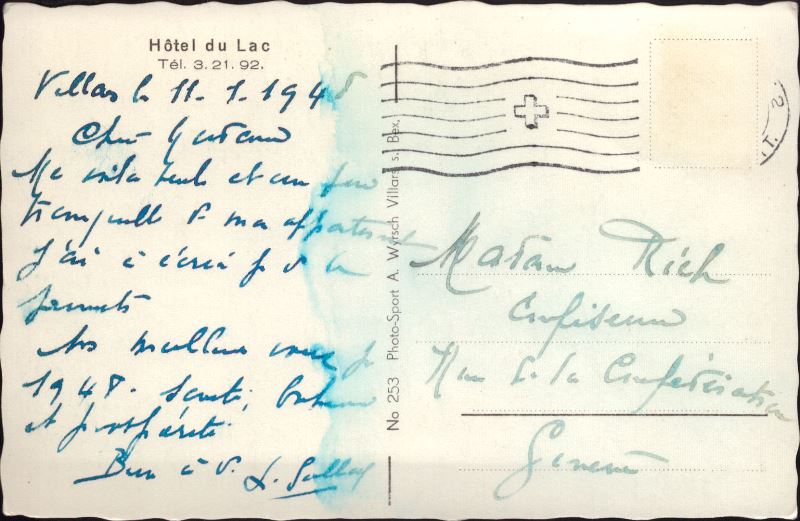 Hôtel du Lac
Tél. 3.21.92.
Villars le 11.1.1948
Chère Madame
Me voilà seule et un peu
tranquille d ma
j'ai à
Nos meilleurs voeux p
1948. Santé, bonheur
et prospérité
Bien à v.
No 253 Photo-Sport A. Wyrsch Villars s. Bex.
Madame Rich
Confiserie
Rue de la Confédération
Genève